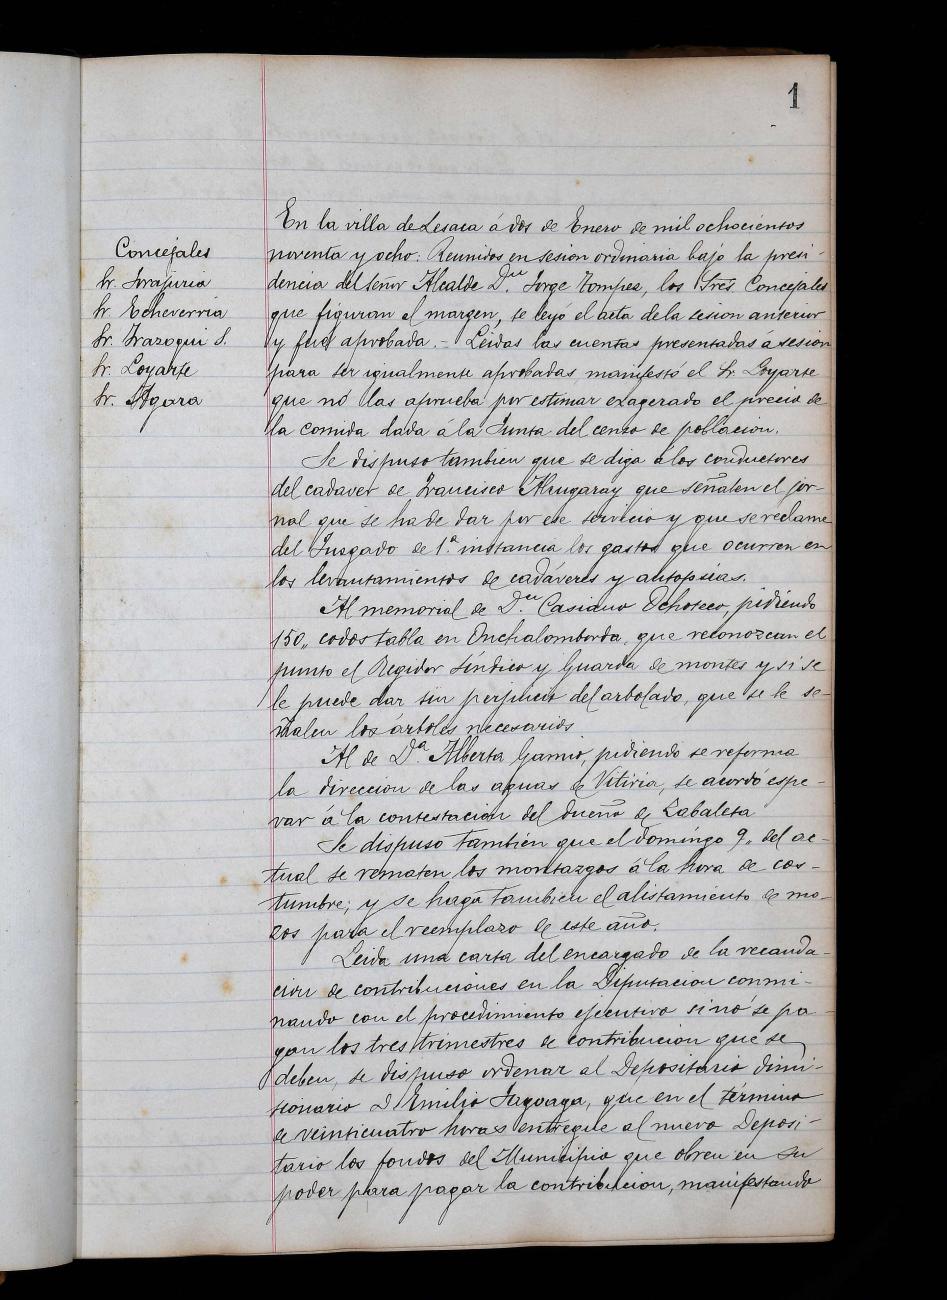 1
En la villa de Lesaca á dos de Enero de mil ochocientos
noventa y ocho: Reunidos en sesion ordinaria bajo la presi-
dencia del señor Alcalde Dn. Jorge Tompes, los Sres. Concejales
que figuran el margen, se leyó el acta de la sesion anterior
y fué aprobada. - Leidas las cuentas presentadas á sesion
para ser igualmente aprobadas, manifestó el Sr. Loyarte
que no las aprueba por estimar exagerado el precio de
la comida dada á la Junta del censo de poblacion.
Concejales
Sr.
Sr. Echeverria
Sr. Irazoqui S.
Sr. Loyarte
Sr. Agara
Se dispuso tambien que se diga á los conductores
del cadaver de Francisco que señalen el jor-
nal que se ha de dar por ese servicio y que se reclame
del Juzgado de 1.ª instancia los gastos que ocurren en
los levantamientos de cadáveres y autopsias.
Al memorial de Dn. Casiano Ochoteco, pidiendo
150,, codos tabla en que reconozcan el
punto el Regidor Síndico y Guarda de montes y si se
le puede dar sin perjuicio del arbolado, que se le se-
ñalen los árboles necesarios
Al de D.ª Alberta Gamio, pidiendo se reforma
la direccion de las aguas de Vitiria, se acordó espe-
rar á la contestacion del dueño de Zabaleta
Se dispuso tambien que el domingo 9,, del ac-
tual se rematen los montazgos á la hora de cos-
tumbre; y se haga tambien el alistamiento de mo-
zos para el reemplazo de este año.
Leida una carta del encargado de la recauda-
cion de contribuciones en la Diputacion conmi-
nando con el procedimiento ejecutivo si no se pa-
gan los tres trimestres de contribucion que se
deben, se dispuso ordenar al Depositario dimi-
sionario D Emilio Jagoaga, que en el término
de veinticuatro horas entregue al nuevo Deposi-
tario los fondos del Municipio que obren en su
poder para pagar la contribucion, manifestando